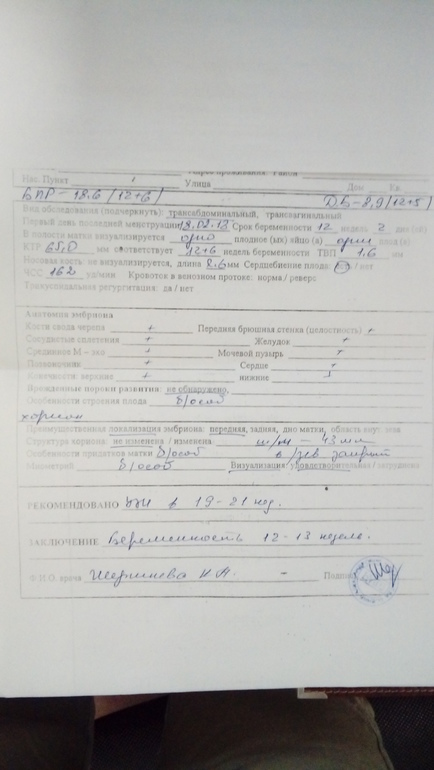 Нас. Пункт Улица Дом Кв.
БПР - 18.6 (12+6) ДБ - 8,9 (12+5)
Вид обследования (подчеркнуть): трансабдоминальный, трансвагинальный
Первый день последней менструации 18.02.13 Срок беременности 12 недель 2 дня (ей)
В полости матки визуализируется одно плодное (ых) яйцо (а) один
КТР 65.0 мм соответствует 12+6 недель беременности ТВП 1.6 мм
Носовая кость не визуализируется, длина 2.6 мм Сердцебиение плода: да / нет
ЧСС 162 уд/мин Кровоток в венозном протоке: норма / реверс
Трикуспидальная регургитация: да / нет
Анатомия эмбриона
Кости свода черепа + Передняя брюшная стенка (целостность) +
Сосудистые сплетения + Желудок +
Срединное М – эхо + Мочевой пузырь +
Позвоночник + Сердце +
Конечности: верхние + нижние +
Врожденные пороки развития: не обнаружено,
Особенности строения плода б/особ
хорион
Преимущественная локализация эмбриона: передняя, задняя, дно матки, область внут. зева
Структура хориона не изменена / изменена ш/м - 43 мм
Особенности придатков матки б/особ в/зев закрыт
Миометрий б/особ Визуализация: удовлетворительная / затруднена
РЕКОМЕНДОВАНО УЗИ в 19-21 нед.
ЗАКЛЮЧЕНИЕ Беременность 12-13 недель.
Ф.И.О. врача Н.А. -